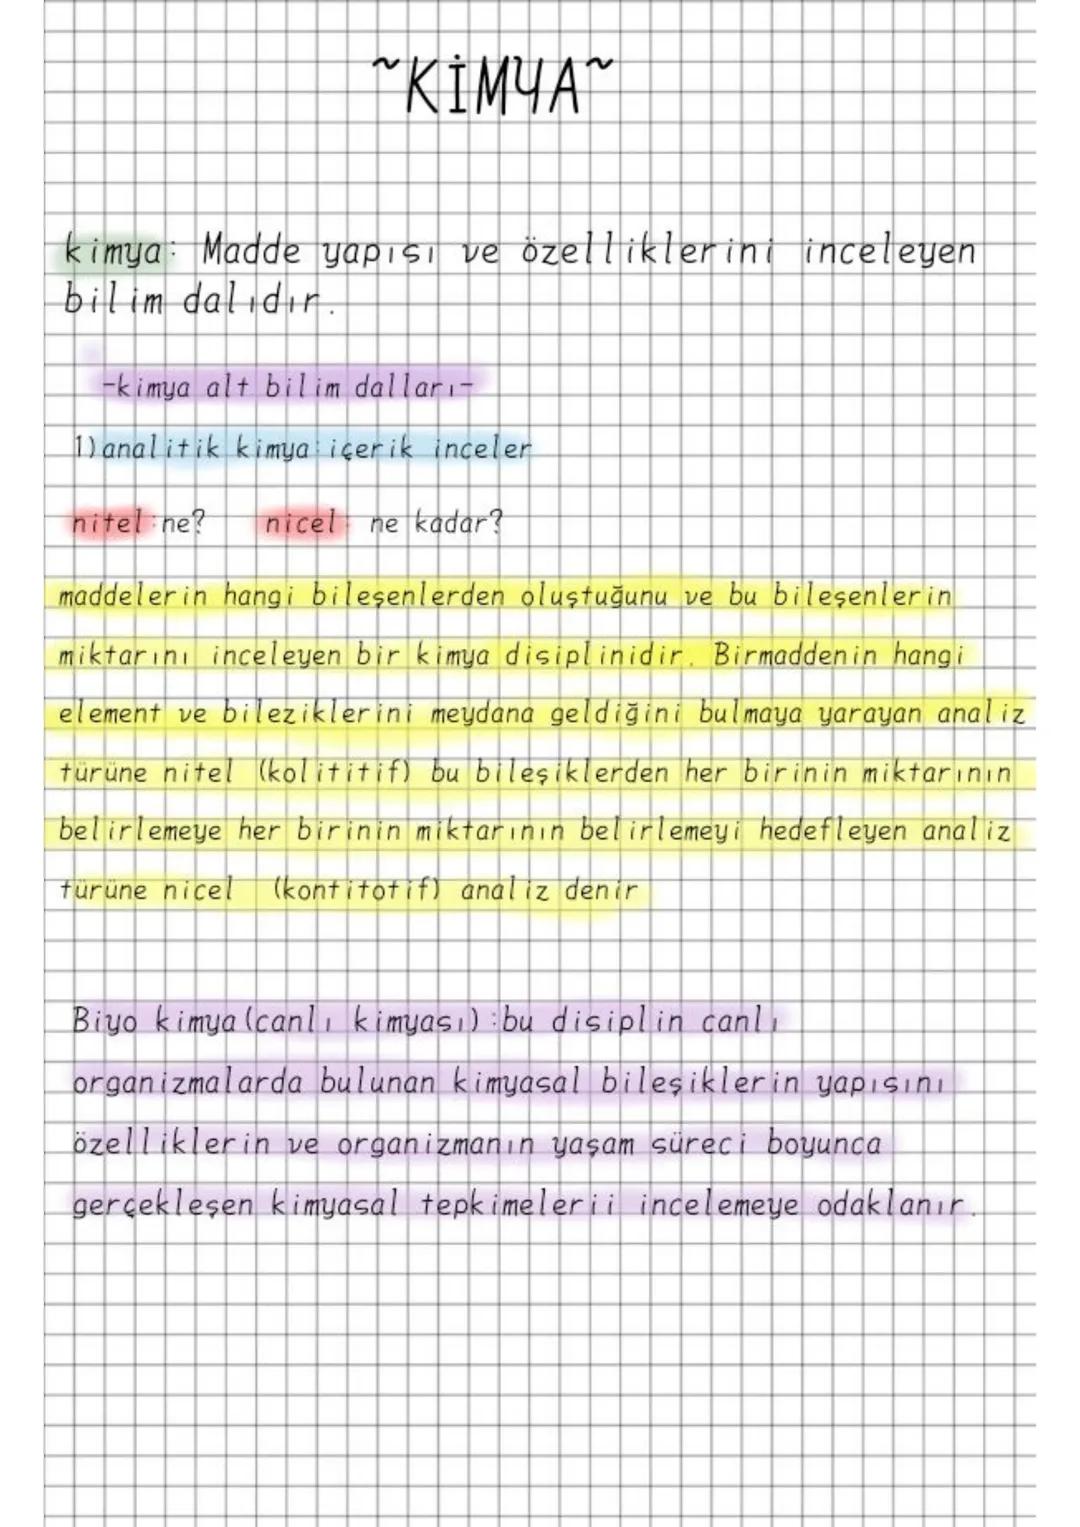 ~KİMYA~
kimya: Madde yapısı ve özelliklerini inceleyen
bilim dalıdır.
-kimya alt bilim dalları-
1) analitik kimya: içerik inceler
nitel: ne? nicel: ne kadar?
maddelerin hangi bileşenlerden oluştuğunu ve bu bileşenlerin
miktarını inceleyen bir kimya disiplinidir. Birmaddenin hangi
element ve bileziklerini meydana geldiğini bulmaya yarayan analiz
türüne nitel (kolititif) bu bileşiklerden her birinin miktarının
belirlemeye her birinin miktarının belirlemeyi hedefleyen analiz
türüne nicel (kontitotif) analiz denir
Biyo kimya (canlı kimyası) :bu disiplin canlı
organizmalarda bulunan kimyasal bileşiklerin yapısını
özelliklerin ve organizmanın yaşam süreci boyunca
gerçekleşen kimyasal tepkimelerii incelemeye odaklanır.